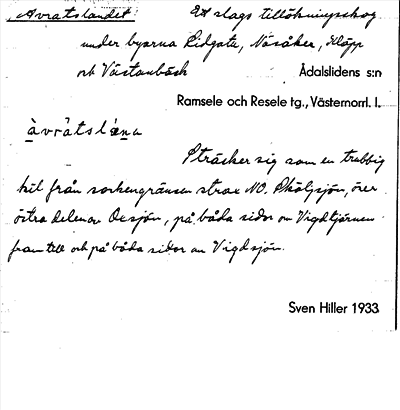 Avratslandet. Ett slags tillökningsskog
under byarna Lidgatu, Näsåker, Kläpp
och Västanbäck Ådalslidens s:n
Ramsele och Resele tg., Västernorrl. l.
àvràtslæ̀na
Sträcker sig som en trubbig
kil från sockengränsen strax NO. Sköljsjön, över
östra delen av Oxsjön, på båda sidor om Vigdtjärnen
fram till och på båda sidor om Vigdsjön.
Sven Hiller 1933